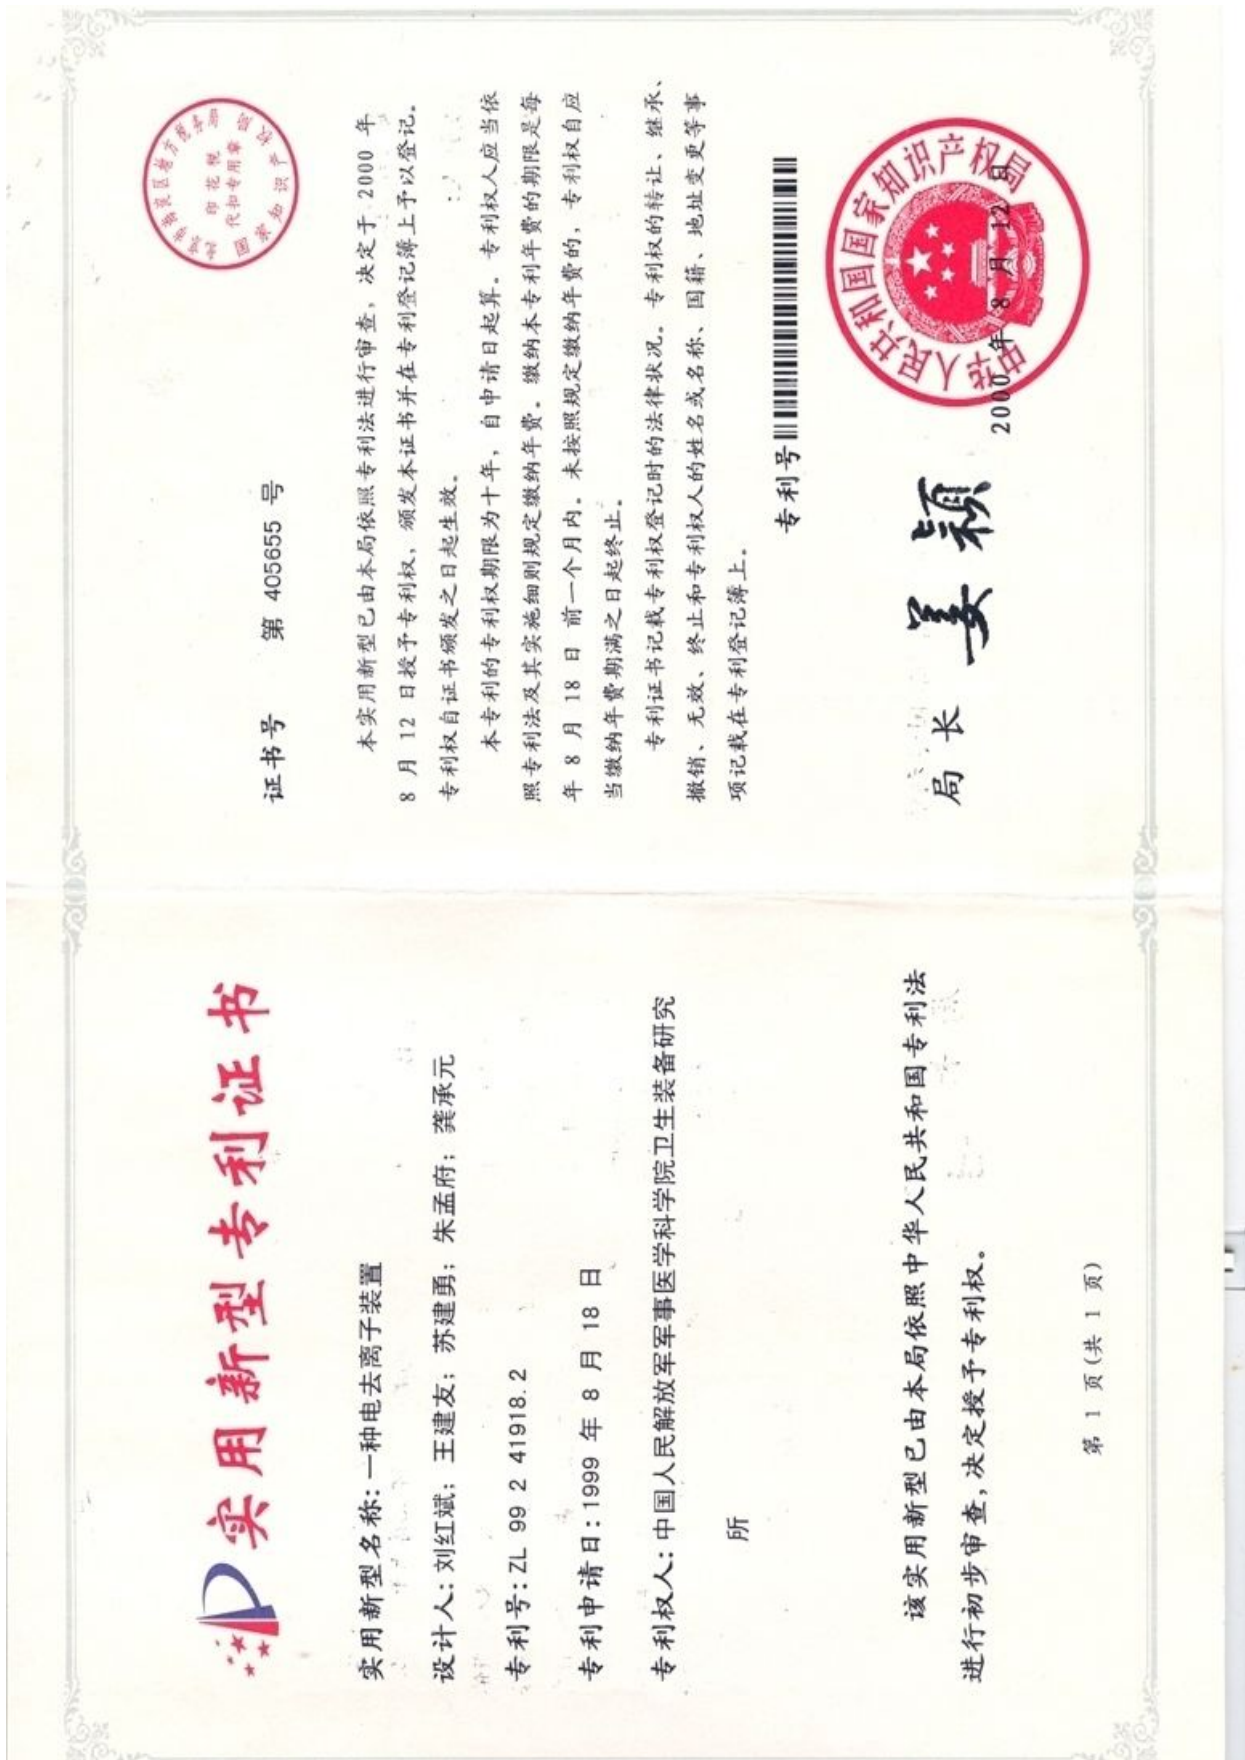 实用新型专利证书
实用新型名称:一种电去离子装置
设计人:刘红斌;王建友;苏建勇;朱孟府;龚承元
专利号:ZL 99 2 41918.2
专利申请日:1999 年 8 月 18 日
专利权人:中国人民解放军军事医学科学院卫生装备研究
所
该实用新型已由本局依照中华人民共和国专利法
进行初步审查,决定授予专利权。
第 1 页(共 1 页)
证书号 第 405655 号
印花税
代扣专用章
国家知识产权局
本实用新型已由本局依照专利法进行审查,决定于 2000 年
8 月 12 日授予专利权,颁发本证书并在专利登记簿上予以登记。
专利权自证书颁发之日起生效。
本专利的专利权期限为十年,自申请日起算。专利权人应当依
照专利法及其实施细则规定缴纳年费。缴纳本专利年费的期限是每
年 8 月 18 日 前一个月内。未按照规定缴纳年费的,专利权自应
当缴纳年费期满之日起终止。
专利证书记载专利权登记时的法律状况。专利权的转让、继承、
撤销、无效、终止和专利权人的姓名或名称、国籍、地址变更等事
项记载在专利登记簿上。
专利号
局长 姜颖
中华人民共和国国家知识产权局
2000 年 8 月 12 日